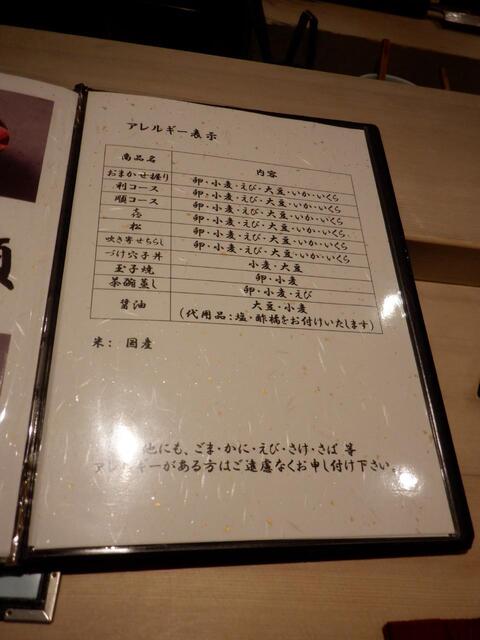 アレルギー表示
商品名 内容
おまかせ握り 卵・小麦・えび・大豆・いか・いくら
利コース 卵・小麦・えび・大豆・いか・いくら
順コース 卵・小麦・えび・大豆・いか・いくら
㐂 卵・小麦・えび・大豆・いか・いくら
松 卵・小麦・えび・大豆・いか・いくら
吹き寄せちらし 卵・小麦・えび・大豆・いか・いくら
づけ穴子丼 小麦・大豆
玉子焼 卵・小麦
茶碗蒸し 卵・小麦・えび
醤油 大豆・小麦
(代用品:塩・酢橘をお付けいたします)
米: 国産
他にも、ごま・かに・えび・さけ・さば 等
アレルギーがある方はご遠慮なくお申し付け下さい。